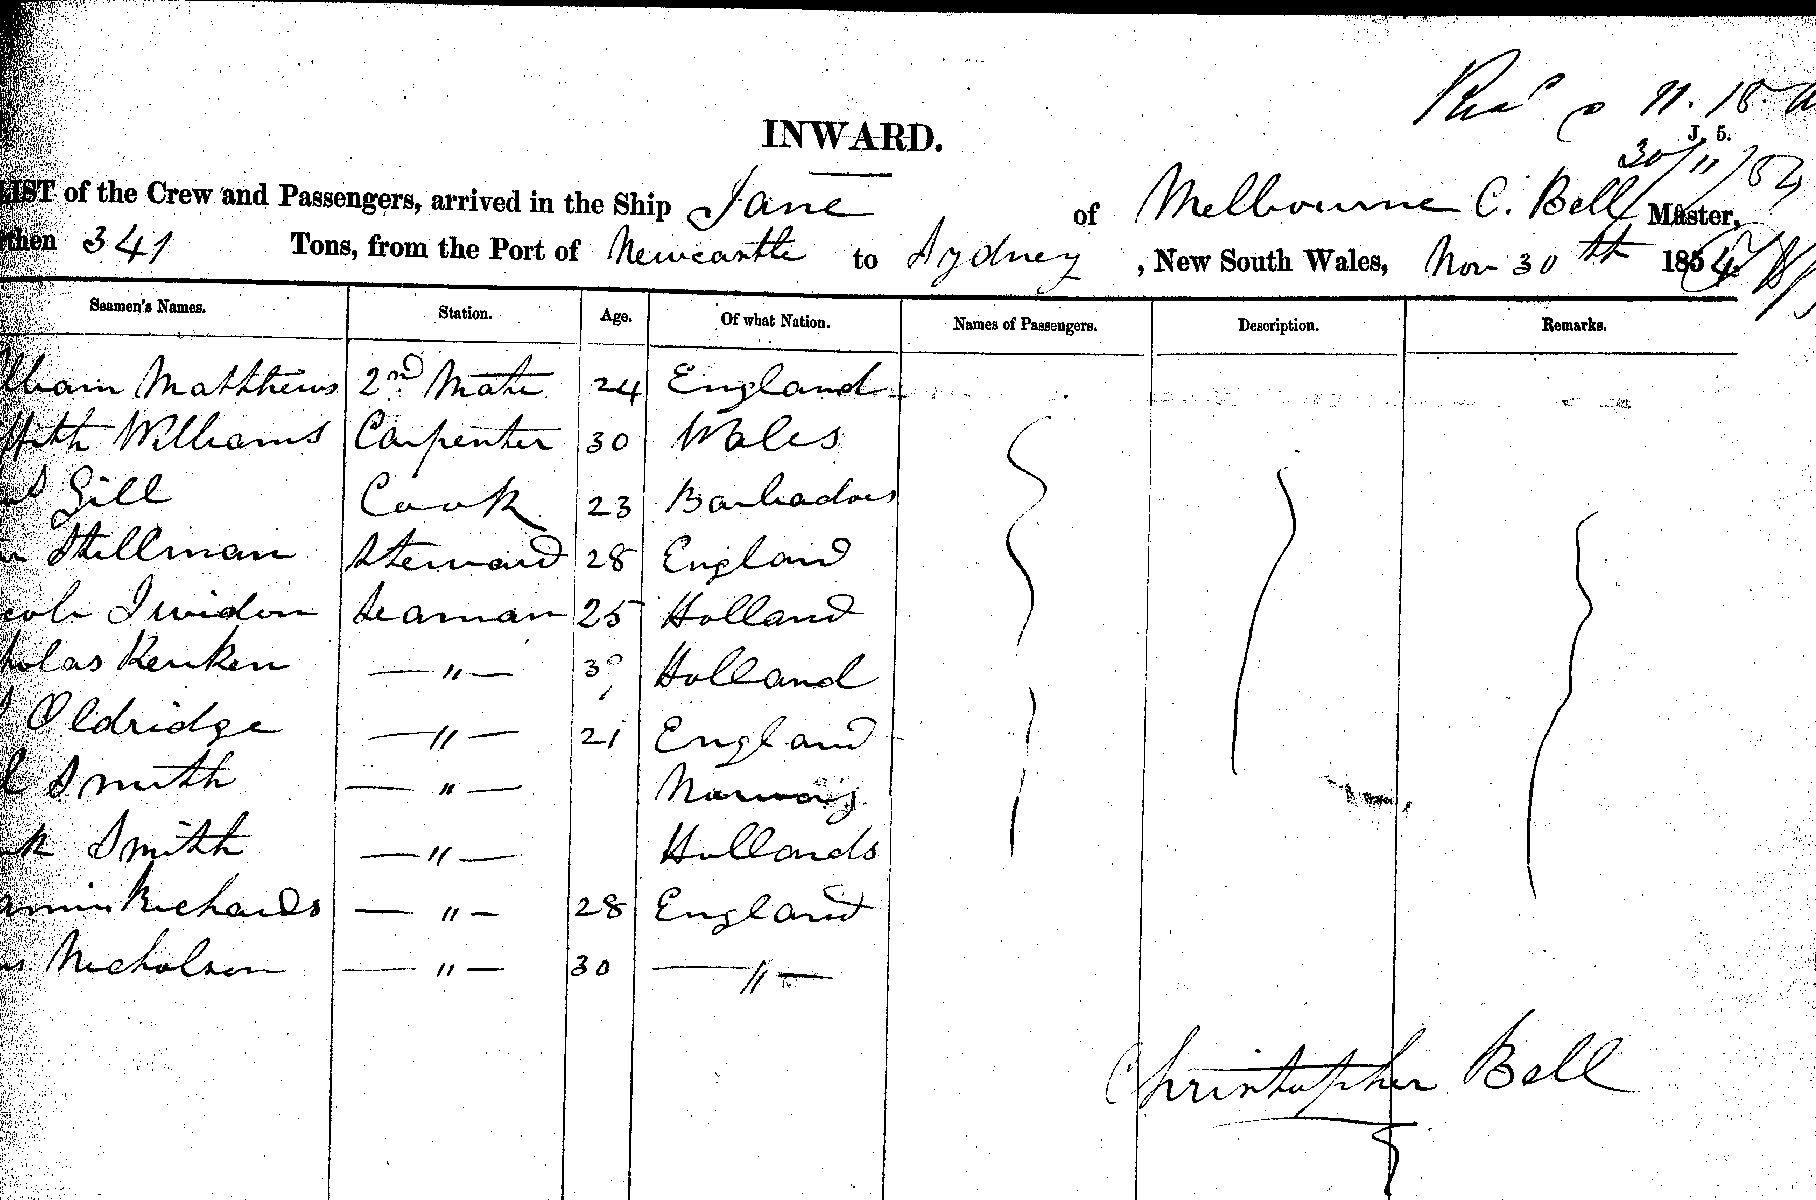 11.18
J. 5.
30/11/54
INWARD.
LIST of the Crew and Passengers, arrived in the Ship Jane of Melbourne C. Bell Master,
then 341 Tons, from the Port of Newcastle to Sydney , New South Wales, Nov 30th 1854
Seamen's Names. Station. Age. Of what Nation. Names of Passengers. Description. Remarks.
lliam Matthews 2nd Mate 24 England
Williams Carpenter 30 Wales
Gill Cook 23 Barbadoes
Stillman Steward 28 England
cob Seaman 25 Holland
olas Renken — " — 30 Holland
Oldridge — " — 21 England
Smith — " — Norway
Smith — " — Hollands
amin Richards — " — 28 England
Nicholson — " — 30 — " —
Christopher Bell